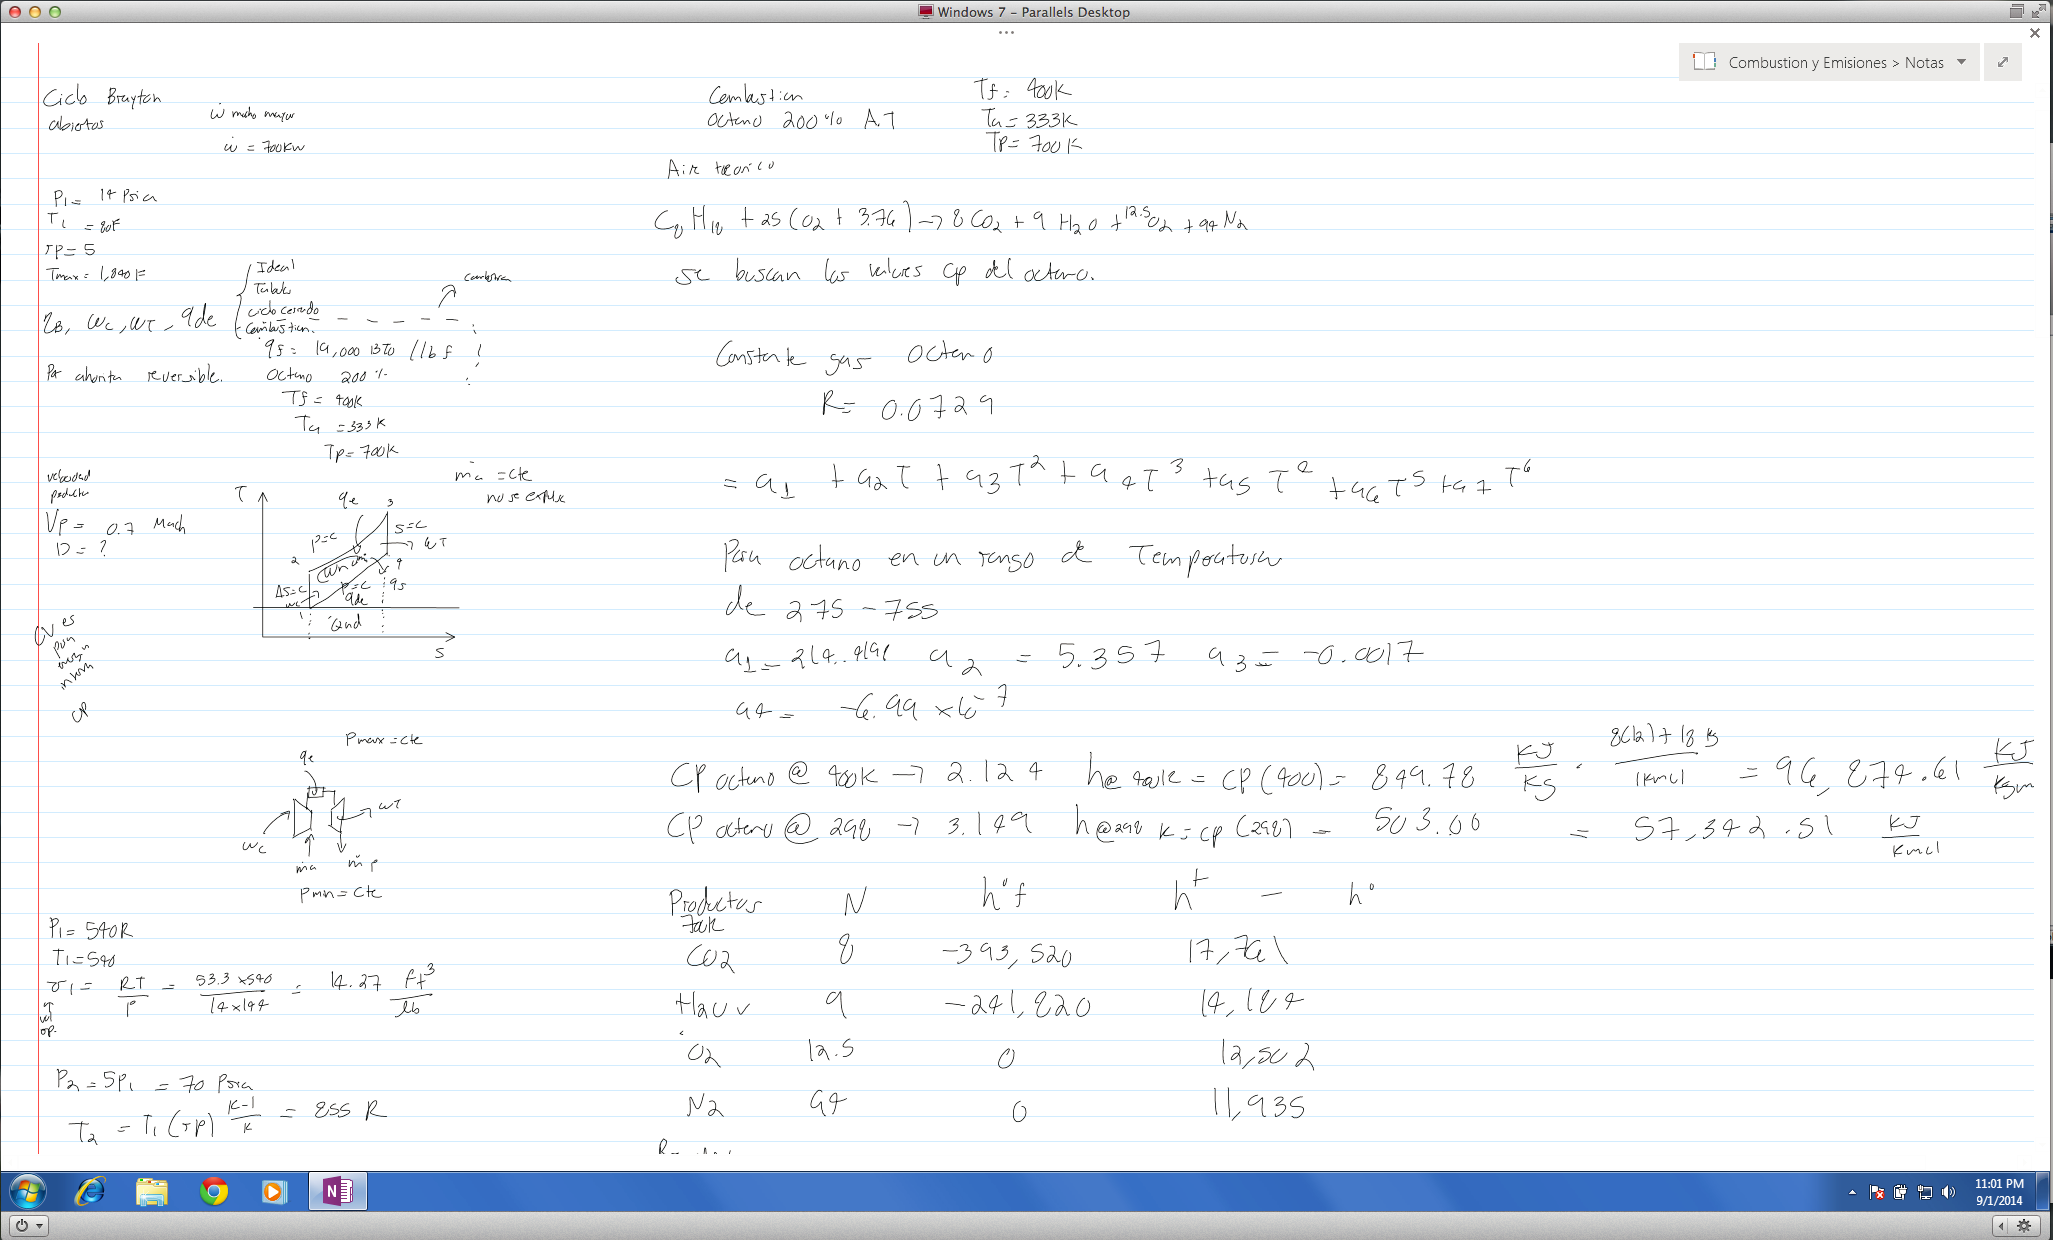 Windows 7 - Parallels Desktop
Combustion y Emisiones > Notas
Ciclo Brayton
abiertos
ẇ mucho mayor
ẇ = 700KW
P1 = 14 Psia
T1 = 80F
rp = 5
Tmax = 1,840F
Ideal
Tablas
ciclo cerrado
Combustion.
ηB, wc, wT, qde
qf = 19,000 BTU / lb f
Octano 200 %
Por ahorita reversible.
Tf = 400K
Ta = 333K
Tp = 700K
velocidad
producto
Vp = 0.7 Mach
D = ?
ṁa = cte
no se expulsa
T
qe
3
p=c
S=c
wT
2
4
qs
ΔS=c
wc
p=c
qde
1
qnd
S
CV es
para
CP
Pmax = cte
qe
wT
wc
ṁa
ṁp
Pmin = cte
P1 = 540R
T1 = 540
v1 = RT/P = 53.3 x 540 / 14 x 144 = 14.27 ft³/lb
vol
esp.
P2 = 5P1 = 70 Psia
T2 = T1 (rp) K-1/K = 855 R
Combustion
Octano 200 % A.T
Tf = 400K
Ta = 333K
Tp = 700K
Air teorico
C8 H18 + 25 (O2 + 3.76) → 8 CO2 + 9 H2O + 12.5 O2 + 94 N2
se buscan los valores cp del octano.
Constante gas Octano
R = 0.0729
= a1 + a2T + a3T² + a4T³ + a5T⁴ + a6T⁵ + a7T⁶
Para octano en un rango de Temperatura
de 275 - 755
a1 = 214..4198 a2 = 5.357 a3 = -0.0017
a4 = -6.99 x10⁻⁷
CP octano @ 400K → 2.124 h@400K = CP(400) = 849.78 KJ/Kg · 8(12)+18 kg / 1Kmol = 96,874.61 KJ/Kgm
CP octano @ 298 → 3.149 h@298 K = cp (298) = 503.00 = 57,342.51 KJ/Kmol
Productos N h°f h+ - h°
700K
CO2 8 -393,520 17,761
H2O v 9 -241,820 14,184
O2 12.5 0 12,502
N2 94 0 11,935
11:01 PM
9/1/2014